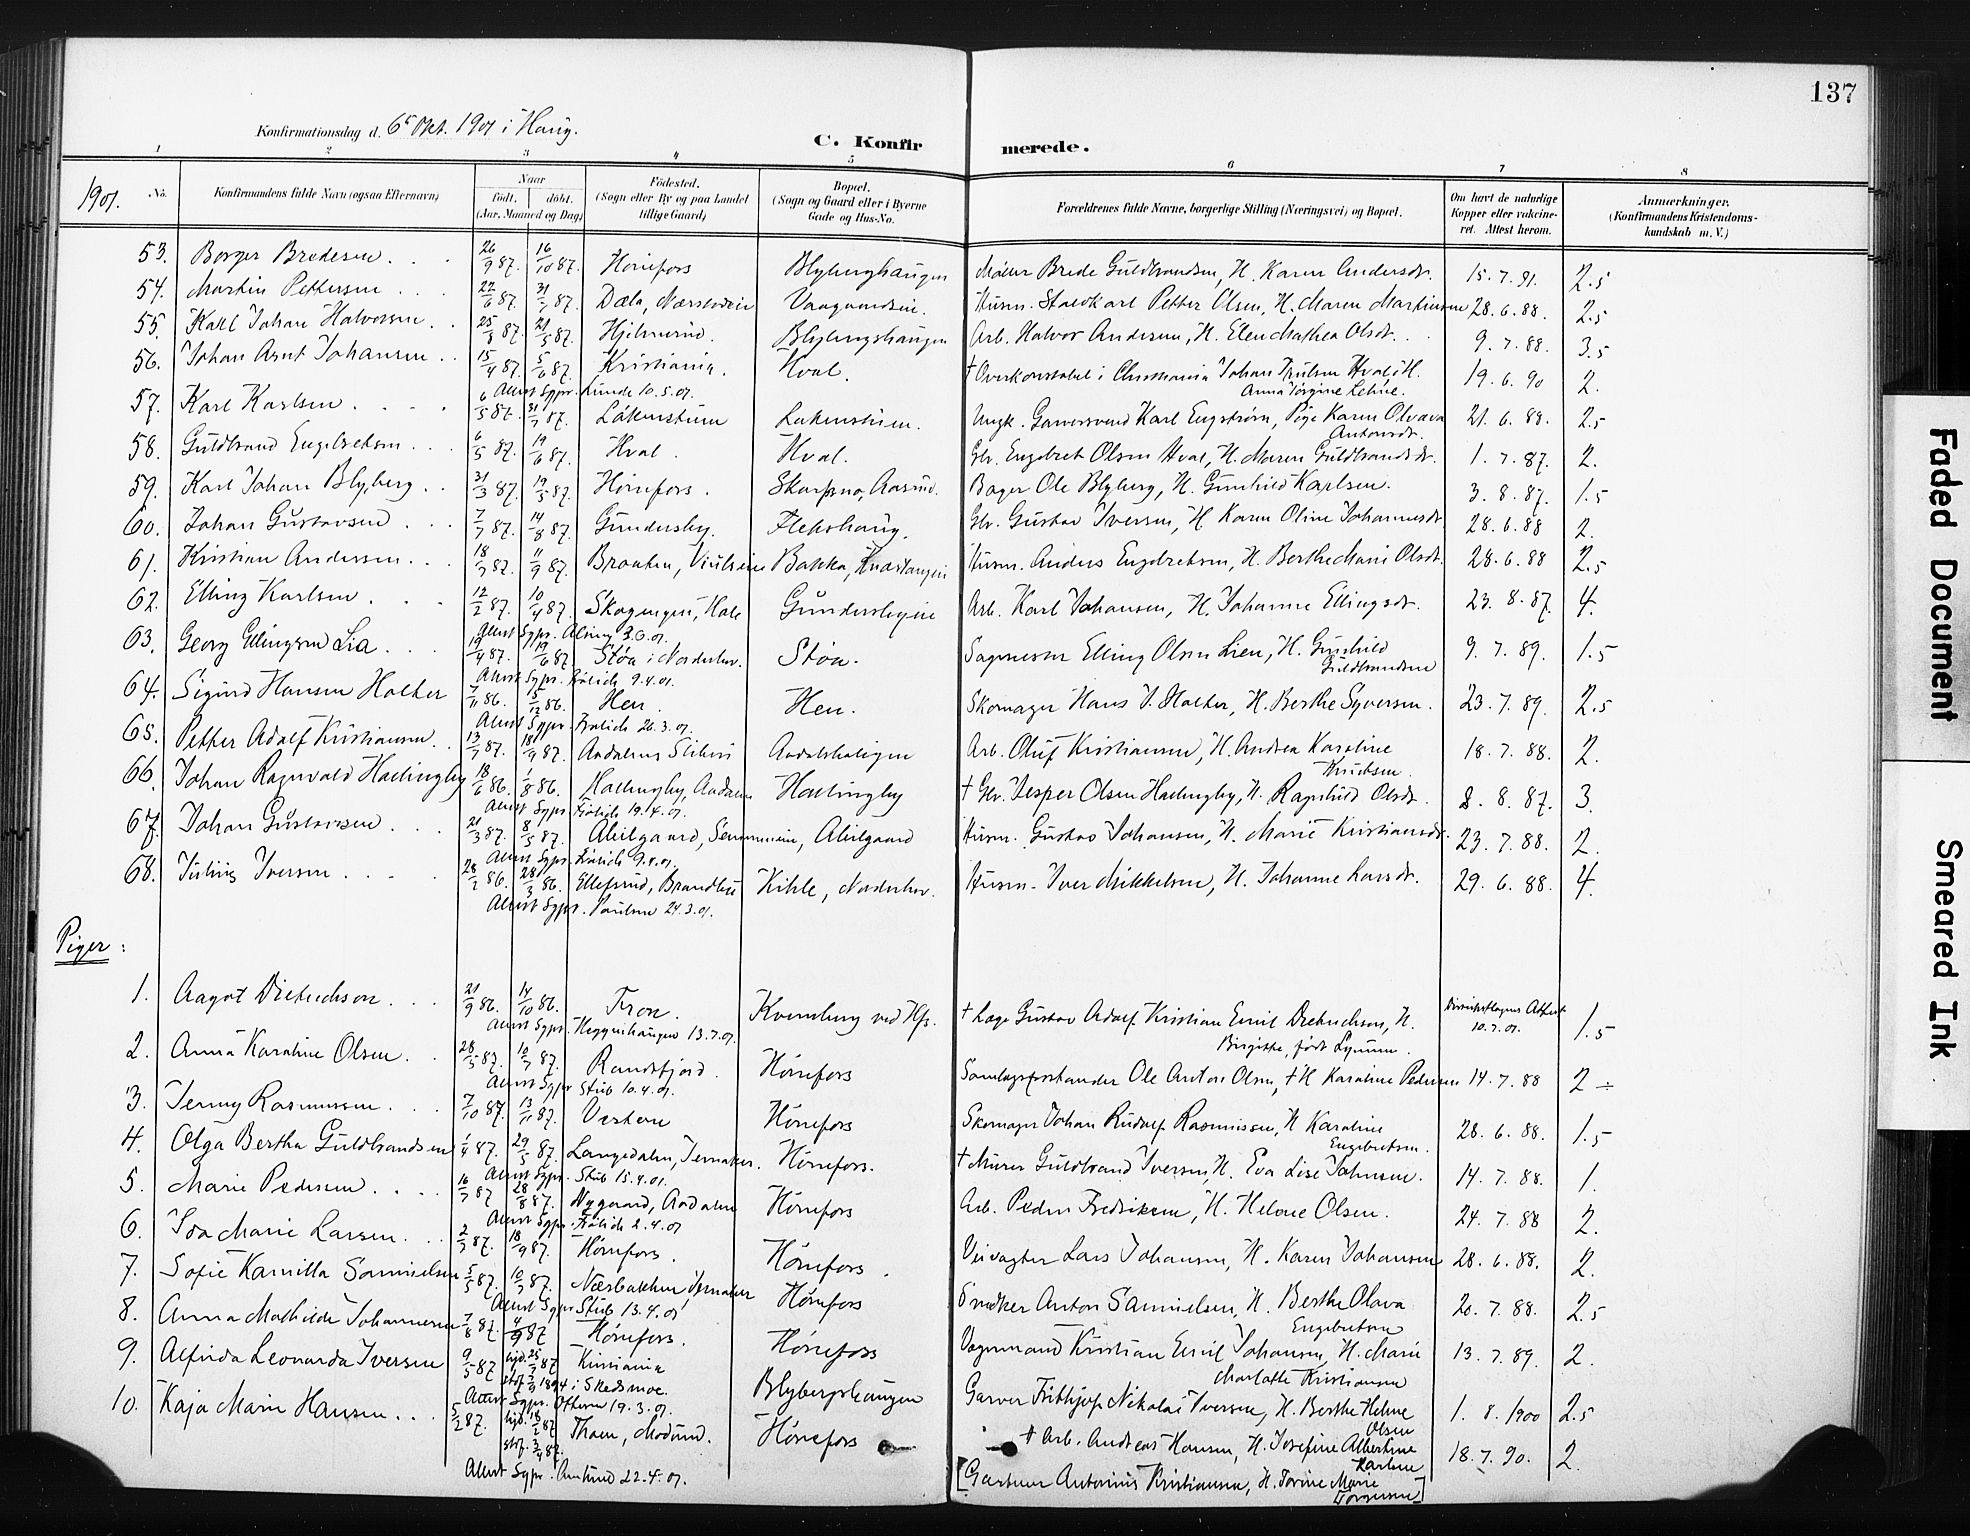 137
Konfirmationsdag d. 6te Okt. 1901 i Haug.
C. Konfirmerede.
1 2 3 4 5 6 7 8
1901.
No.
Konfirmandens fulde Navn (ogsaa Efternavn)
Naar
født, døbt.
(Aar, Maaned og Dag)
Fødested.
(Sogn eller By og paa Landet
tillige Gaard)
Bopæl.
(Sogn og Gaard eller i Byerne
Gade og Hus-No.
Forældrenes fulde Navne, borgerlige Stilling (Næringsvei) og Bopæl.
Om havt de naturlige
Kopper eller vakcine-
ret. Attest herom.
Anmærkninger.
(Konfirmandens Kristendoms-
kundskab m. V.)
53. Borger Bredesen 26/9 87. 16/10 87. Hønefos Blyberghaugen Møller Brede Guldbrandsen, H. Karen Andersdt. 15.7.91. 2.5
54. Martin Pettersen 22/6 87. 31/7 87. Dæla, Næsseveien Vaagaardseie. Husm. Staldkarl Petter Olsen, H. Maren Martinsen 28.6.88. 2.5
55. Karl Johan Halvorsen 25/3 87. 21/5 87. Hjelmerud. Blybergshaugen Arb. Halvor Andersen, H. Elen Mathea Olsdt. 9.7.88. 3.5
56. Johan Arnt Johansen 15/4 87. 5/6 87. Kristiania. Hval. † Overkonstabel i Christiania Johan Trulsen Hval, H. 19.6.90 2.
Attest Sgpr. Lunde 10.5.01. Anna Jørgine Lehne.
57. Karl Karlsen 6/5 87. 31/7 87. Løkenstuen Løkenstuen. Ungk. Garversvend Karl Engstrøm, Pige Karen Olava 21.6.88. 2.5
Antonsdt.
58. Guldbrand Engebretsen 6/5 87. 19/6 87. Hval. Hval. Gbr. Engebret Olsen Hval, H. Maren Guldbrandsdt. 1.7.87. 2.
59. Karl Johan Blyberg 31/3 87. 19/5 87. Hønefos. Skarpsno, Aasrud. Bager Ole Blyberg, H. Gunhild Karlsen. 3.8.87. 1.5
60. Johan Gustavsen 7/7 87. 14/8 87. Gundersby. Flekshaug. Gbr. Gustav Iversen, H. Karen Oline Johannesdt. 28.6.88 2.
61. Kristian Andersen 18/7 87. 11/9 87. Braaten, Viulseie Bakka, Knestangen Husm. Anders Engebretsen, H. Berthe Marie Olsdt. 28.6.88 2.5
62. Elling Karlsen 12/2 87. 10/4 87. Skogengen, Hole Gundersbyeie Arb. Karl Johansen, H. Johanne Ellingsdt. 23.8.87. 4.
63. Georg Ellingsen Lia 19/4 87. 19/6 87. Støa i Norderhov. Støa. Sagmester Elling Olsen Lien, H. Gunhild 9.7.89. 1.5
Guldbrandsen
64. Sigurd Hansen Holter 7/11 86. 5/12 86. Hen. Hen. Skomager Hans J. Holter, H. Berthe Syversen. 23.7.89. 2.5
65. Petter Adolf Kristiansen 13/7 87. 18/9 87. Aadalens Sliberi Aadalskatigen Arb. Oluf Kristiansen, H. Andrea Karoline 18.7.88. 2.
Knudsen.
66. Johan Ragnvald Hallingby 18/6 86. 1/8 86. Hallingby, Aadalen Hallingby † Gbr. Jesper Olsen Hallingby, H. Ragnhild Olsdt. 8.8.87. 3.
67. Johan Gustavsen 21/3 87. 8/5 87. Alilgaard, Semmeneie, Alilgaard Husm. Gustav Johansen, H. Marie Kristiansdt. 23.7.88. 2.
68. Julius Iversen 28/2 86. 28/3 86. Ellefsrud, Brandbu Kihle, Norderhov. Husm. Iver Mikkelsen, H. Johanne Larsdt. 29.6.88. 4.
Attest Sgpr. Paulsen 24.3.01.
Piger:
1. Aagot Dietrichson 21/9 86. 14/10 86. Tron. Kvernberg ved Hfs. † Læge Gustav Adolf Kristian Emil Dietrichson, H. Distriktslægens Attest 10.7.01. 1.5
Birgitte, født Lynum.
2. Anna Karoline Olsen 28/5 87. 10/7 87. Randsfjord. Hønefos Samlagsforstander Ole Anton Olsen, † H Karoline Pedersen 14.7.88 2 ÷
Attest Sgpr. Stub 10.4.01.
3. Jenny Rasmussen 7/10 87. 13/11 87. Vestern Hønefos Skomager Johan Rudolf Rasmussen, H Karoline 28.6.88. 1.5
Engebretsen.
4. Olga Bertha Guldbrandsen 1/4 87. 29/5 87. Langedalen, Jevnaker. Hønefos. † Murer Guldbrand Iversen, H. Eva Lise Johnsen. 14.7.88. 1.
Attest Sgpr. Stub 15.4.01.
5. Marie Pedersen 16/7 87 28/8 87. Nygaard, Aadalen Hønefos Arb. Peder Fredriksen, H. Helene Olsen. 24.7.88 2.
6. Ida Marie Larsen 2/7 87. 18/9 87. Hønefos. Hønefos. Veivogter Lars Johansen, H. Karen Johansen 28.6.88. 2.
7. Sofie Kamilla Samuelsen 5/5 87. 10/7 87. Næsbakken, Jevnaker Hønefos Snedker Anton Samuelsen, H. Berthe Olava 20.7.88. 2.5
Attest Sgpr. Stub 13.4.01 Engebretsen
8. Anna Mathilde Johannesen 7/8 87. 4/9 87 Hønefos. Hønefoss Vognmand Kristian Emil Johansen, H. Marie 13.7.89. 2.
Charlotte Kristiansen
9. Alfrida Leonarda Iversen 9/5 87 hjd. 25/5 87 Kristiania Blybergshaugen Garver Frithjof Nikolai Iversen, H. Berthe Helene 1.8.1900 2.5
1894 i Skedsmoe. Olsen
Attest Sgpr. Oftern 19.3.01.
10. Kaja Marie Hansen 5/2 87. hjd. 16/2 87 Thaen, Modum. Hønefos † Arb. Andreas Hansen, H. Josefine Albertine 18.7.90. 2.
stf. 3/4 87. Karlsen
Attest Sgpr. Amlund 22.4.01. [Gartner Antonius Kristiansen, H. Torine Marie
Jørgensen]
Faded Document
Smeared Ink